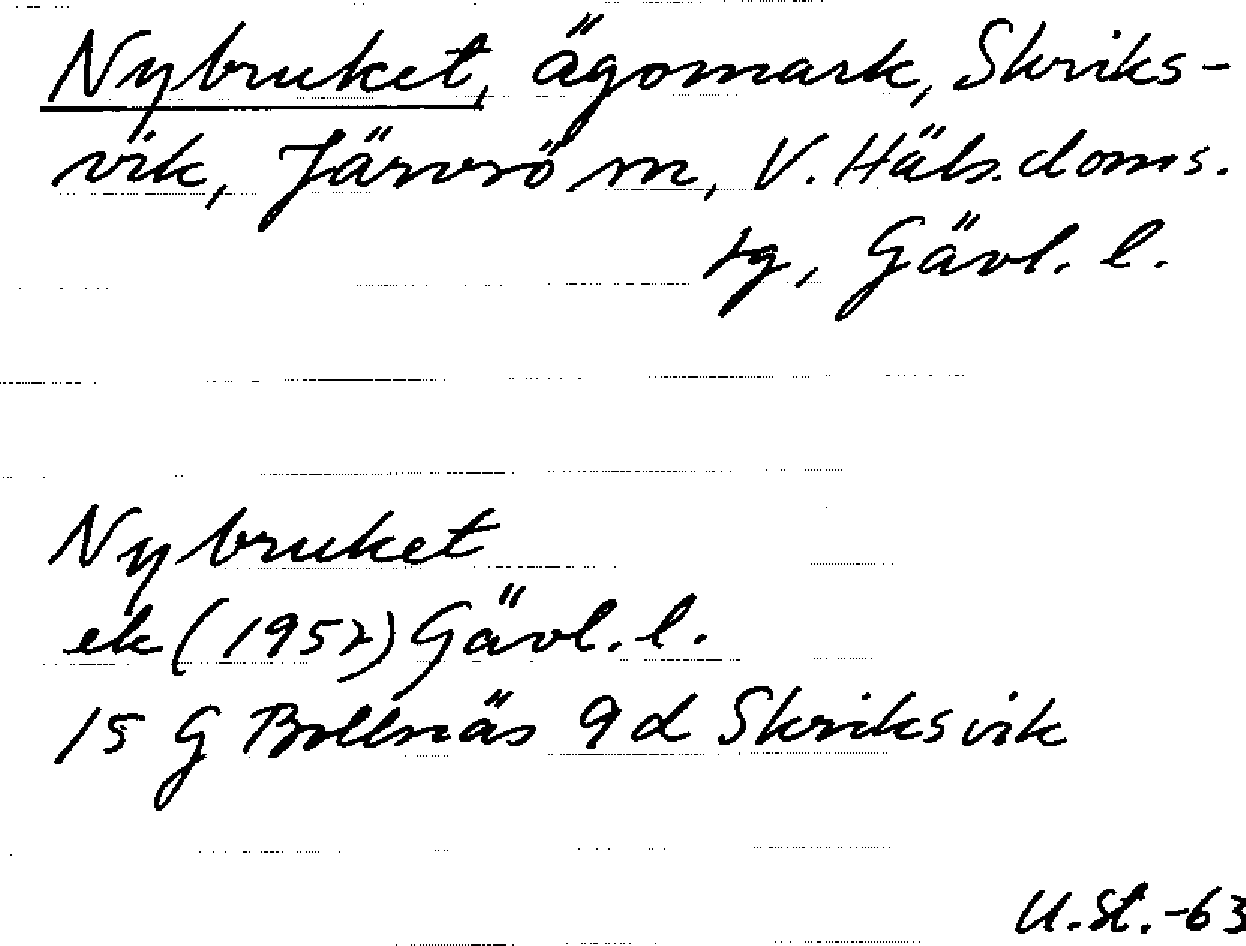 Nybruket, ägomark, Skriks-
vik, Järvsö sn, V. Häls. doms.
tg, Gävl. l.
Nybruket
ek (1952) Gävl. l.
15 G Bollnäs 9d Skriksvik
U.St.-63